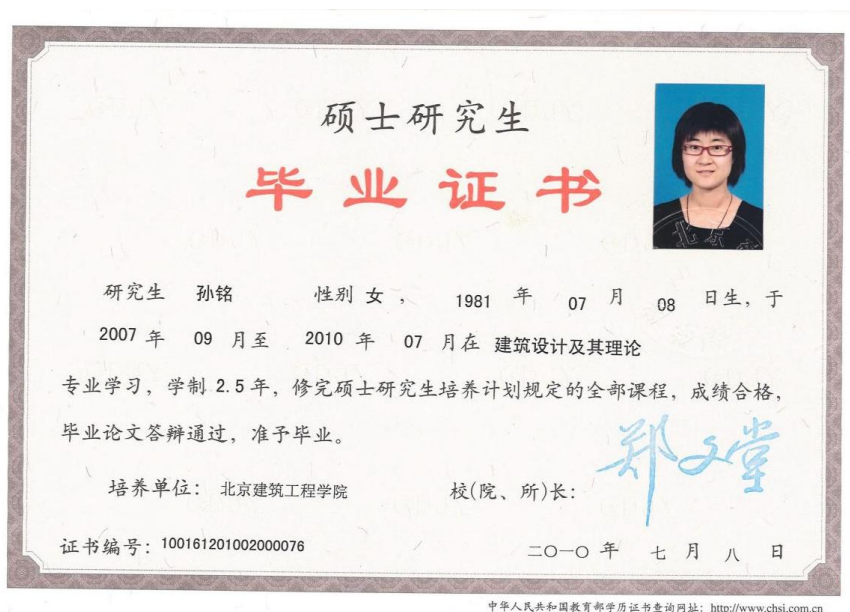 硕士研究生
毕业证书
研究生 孙铭 性别 女， 1981 年 07 月 08 日生，于
2007 年 09 月至 2010 年 07 月在 建筑设计及其理论
专业学习，学制 2.5 年，修完硕士研究生培养计划规定的全部课程，成绩合格，
毕业论文答辩通过，准予毕业。
培养单位：北京建筑工程学院 校(院、所)长：郑文堂
证书编号：100161201002000076 二〇一〇 年 七 月 八 日
中华人民共和国教育部学历证书查询网址：http://www.chsi.com.cn